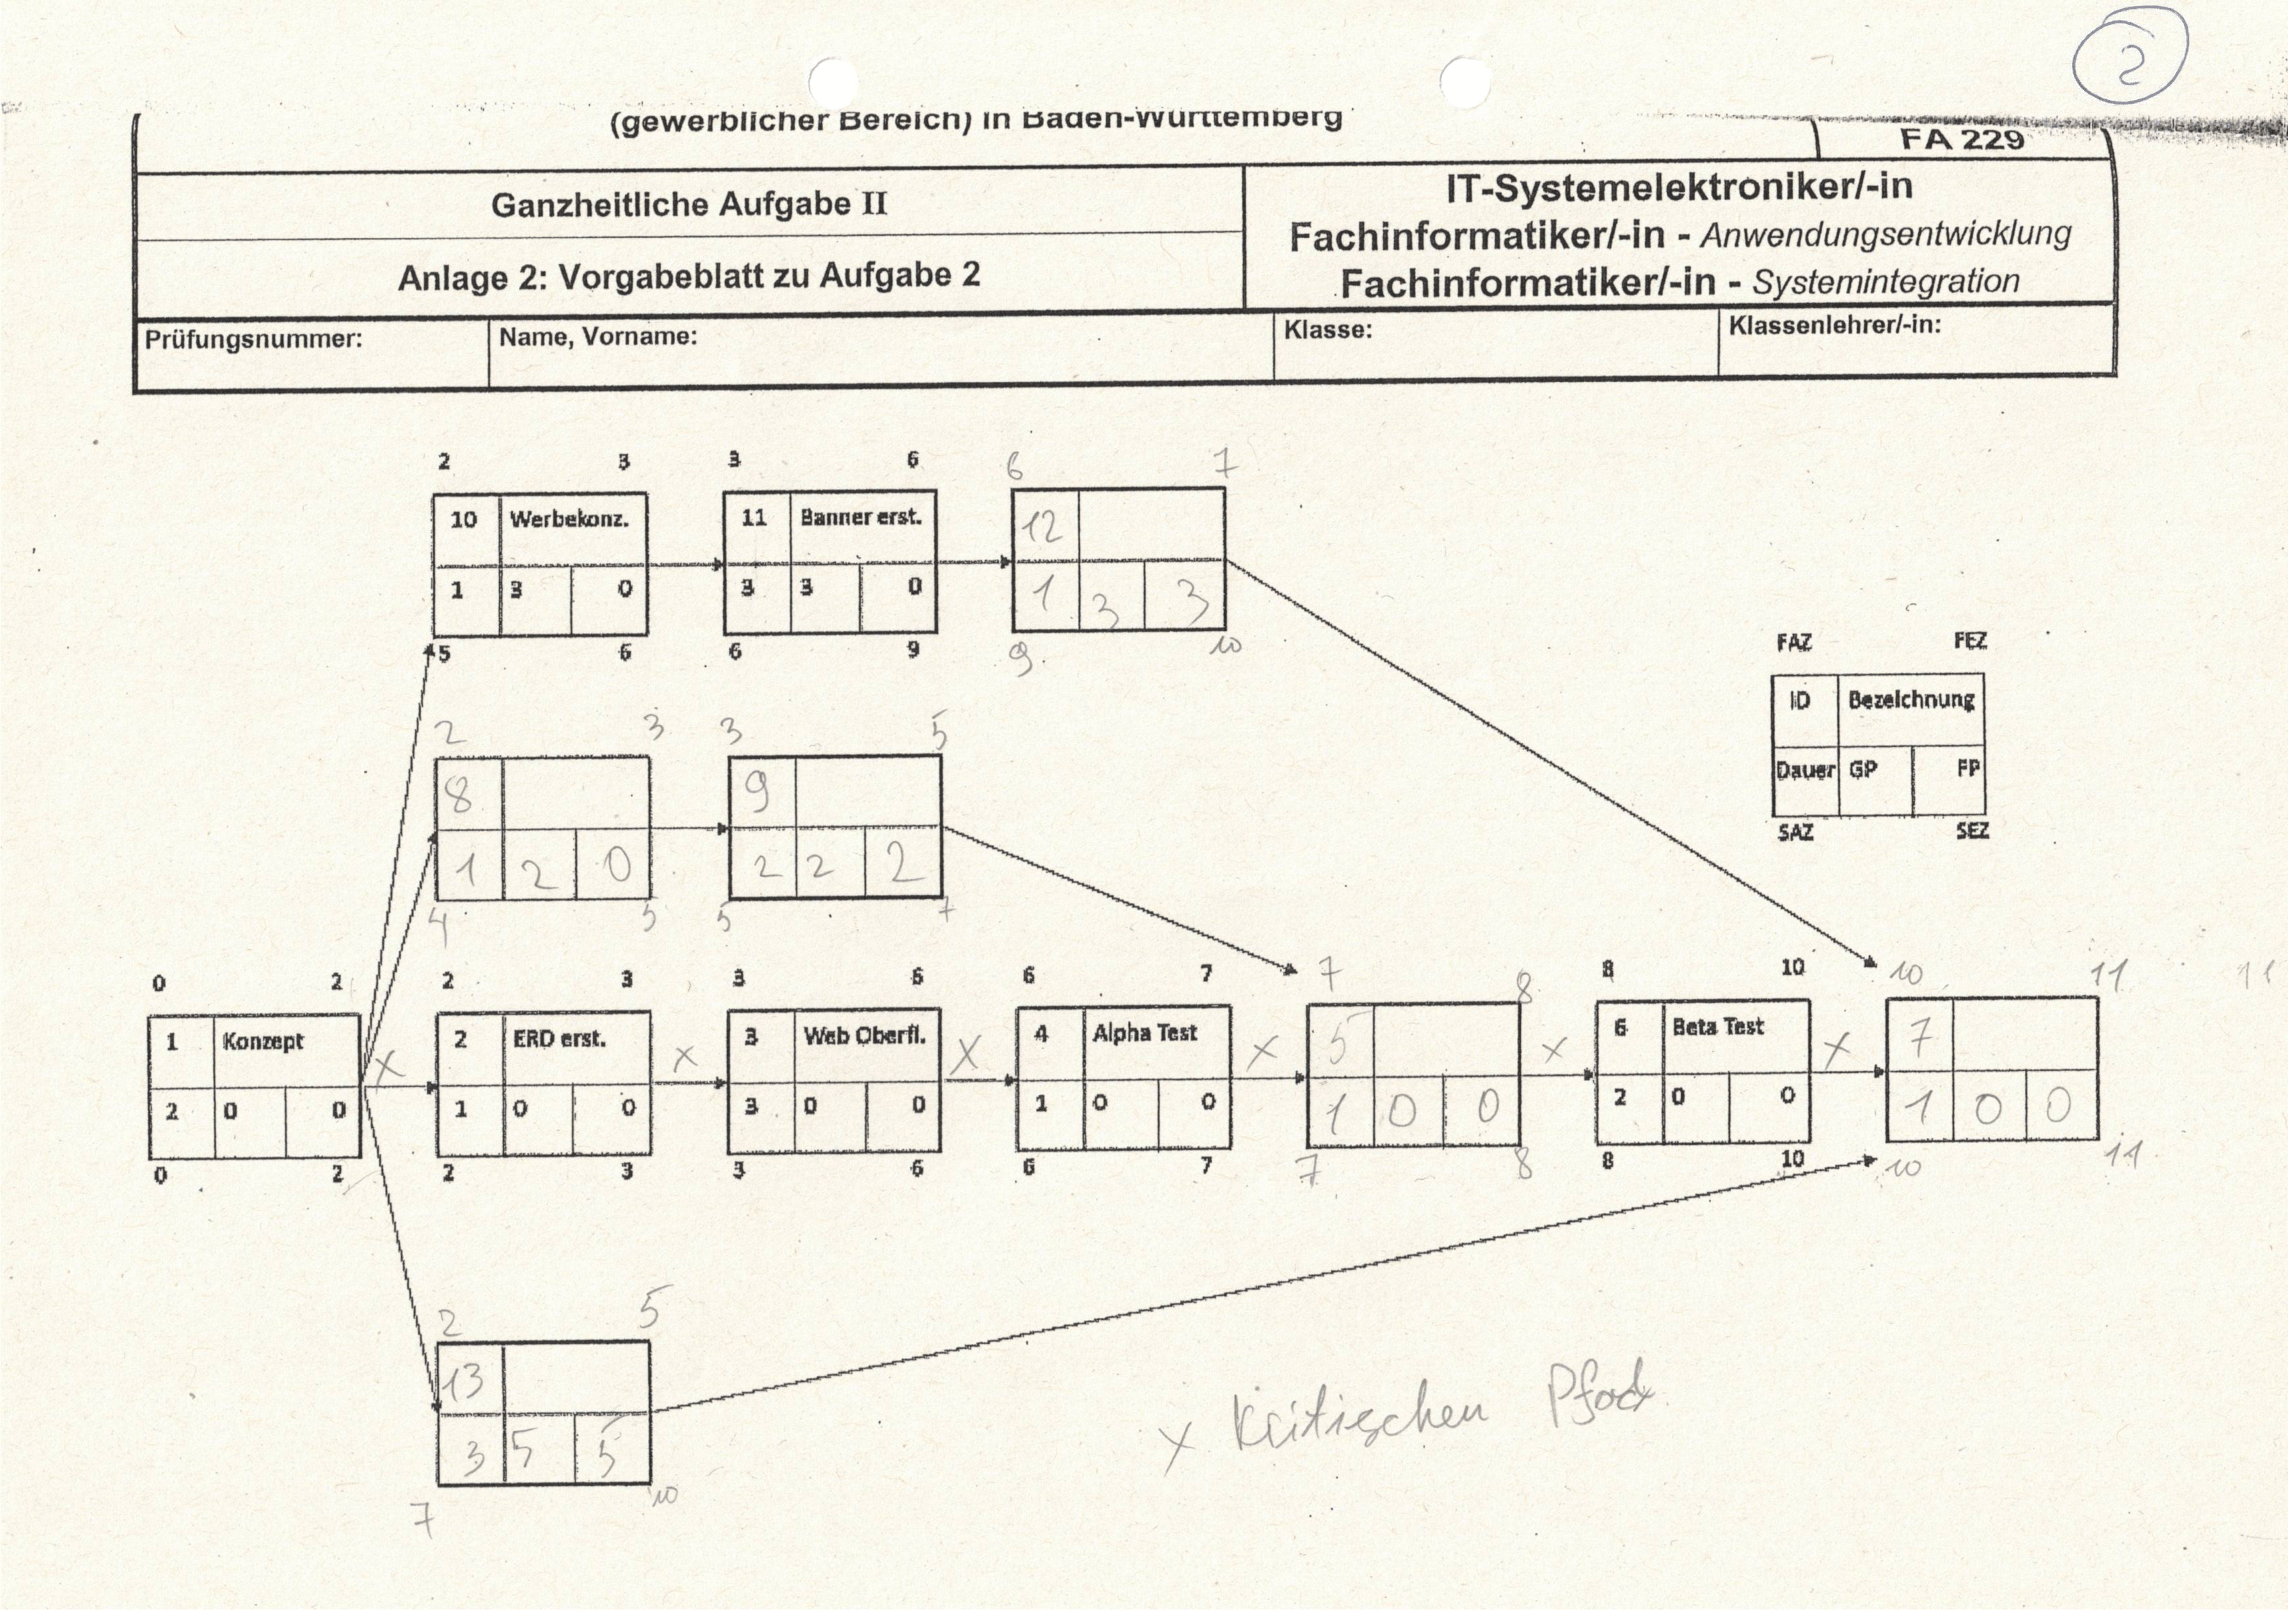 2
(gewerblicher Bereich) in Baden-Württemberg
FA 229
Ganzheitliche Aufgabe II
Anlage 2: Vorgabeblatt zu Aufgabe 2
IT-Systemelektroniker/-in
Fachinformatiker/-in - Anwendungsentwicklung
Fachinformatiker/-in - Systemintegration
Prüfungsnummer:
Name, Vorname:
Klasse:
Klassenlehrer/-in:
2 3
10 Werbekonz.
1 3 0
5 6
3 6
11 Banner erst.
3 3 0
6 9
6 7
12
1 3 3
9 10
FAZ FEZ
ID Bezeichnung
Dauer GP FP
SAZ SEZ
2 3
8
1 2 0
4 5
3 5
9
2 2 2
5 7
0 2
1 Konzept
2 0 0
0 2
x
2 3
2 ERD erst.
1 0 0
2 3
x
3 6
3 Web Oberfl.
3 0 0
3 6
x
6 7
4 Alpha Test
1 0 0
6 7
x
7 8
5
1 0 0
7 8
x
8 10
6 Beta Test
2 0 0
8 10
x
10 11
7
1 0 0
10 11
11
2 5
13
3 5 5
7 10
x Kritischen Pfad